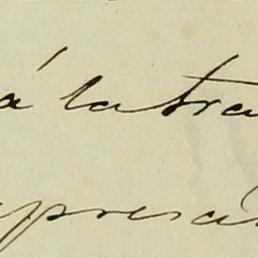 á la tra
presá